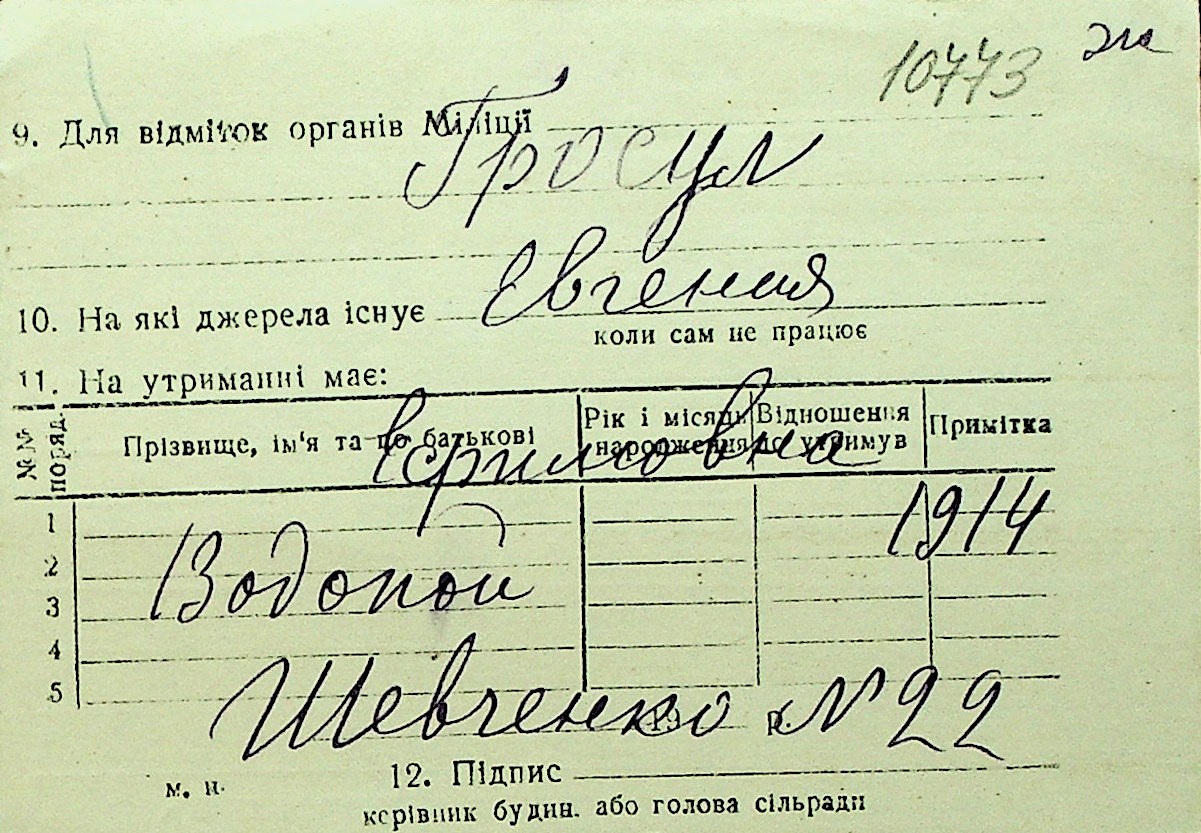 10773
9. Для відміток органів Міліції
Гросул
Евгения
10. На які джерела існує
коли сам не працює
11. На утриманні має:
№№ поряд. Прізвище, ім'я та по батькові Рік і місяць народження Відношення до утримув Примітка
1914
1
2
Водопой
3
4
5
Шевченко № 22
19 р.
м. п. 12. Підпис
керівник будин. або голова сільради